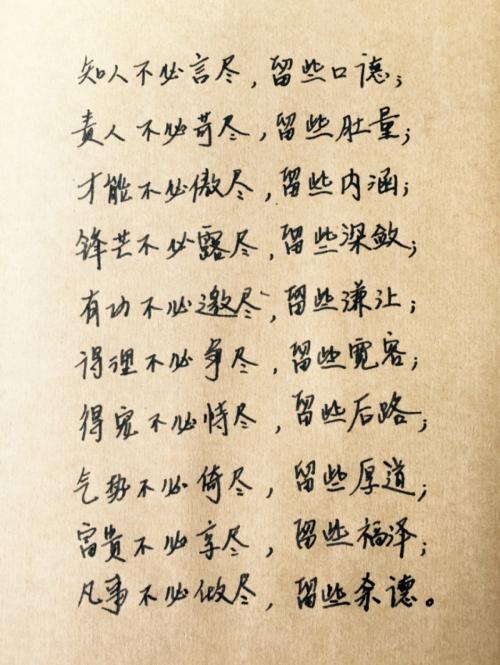 知人不必言尽，留些口德；
责人不必苛尽，留些肚量；
才能不必傲尽，留些内涵；
锋芒不必露尽，留些深敛；
有功不必邀尽，留些谦让；
得理不必争尽，留些宽容；
得宠不必恃尽，留些后路；
气势不必倚尽，留些厚道；
富贵不必享尽，留些福泽；
凡事不必做尽，留些余德。